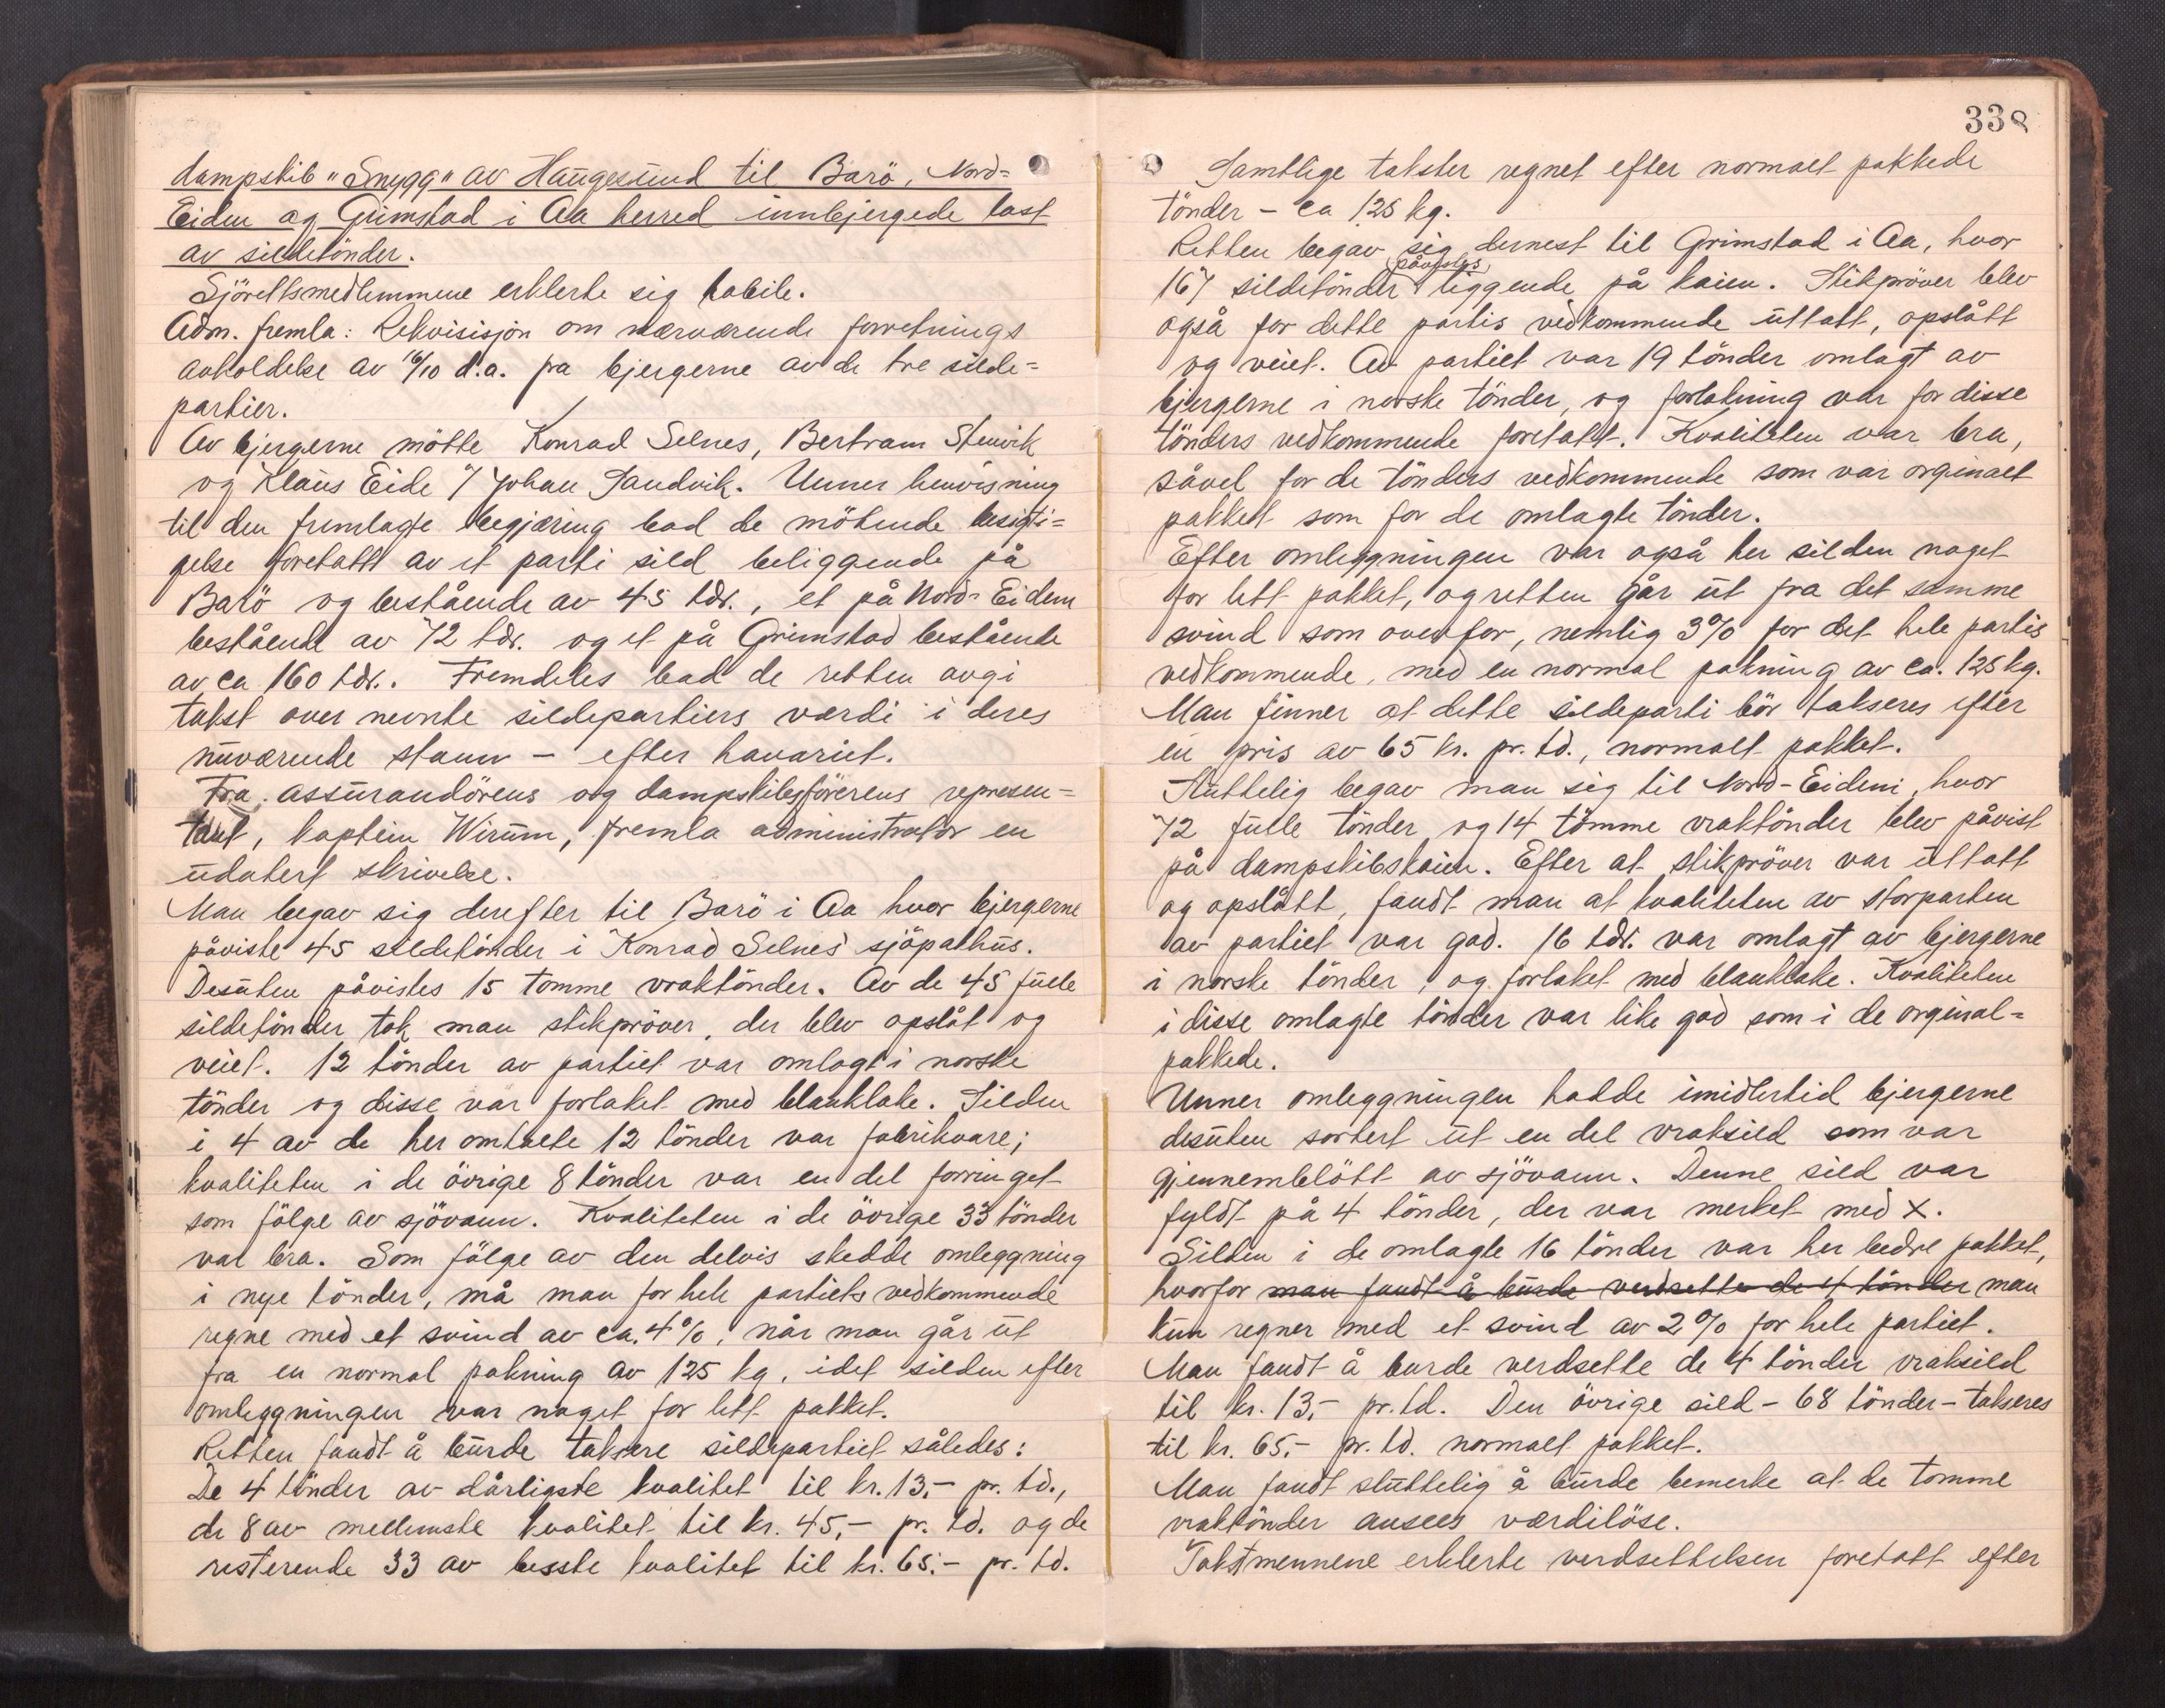 dampskib "Snygg" av Haugesund til Barö, Nord-
Eiden og Grimstad i Aa herred innbjergede last
av sildetönder.
Sjörettsmedlemmene erklerte sig habile.
Adm. fremla: Rekvisisjon om nærværende forretnings
avholdelse av 16/10 d.a. fra bjergerne av de tre silde-
partier.
Av bjergerne mötte Konrad Selnes, Bertram Stenvik
og Klaus Eide f/ Johan Sandvik. Unner henvisning
til den fremlagte begjæring bad de mötende besigti-
gelse foretatt av et parti sild beliggende på
Barö og bestående av 45 tdr., et på Nord-Eidem
bestående av 72 tdr. og et på Grimstad bestående
av ca 160 tdr.. Fremdeles bad de retten avgi
takst over nevnte sildepartiers værdi i deres
nuværende stann - efter havariet.
Fra assurandörens og dampskibsförerens represen-
tant, kaptein Wirum, fremla administrator en
udatert skrivelse.
Man begav sig derefter til Barö i Aa hvor bjergerne
påviste 45 sildetönder i Konrad Selnes' sjöpakhus.
Desuten påvistes 15 tomme vraktönder. Av de 45 fulle
sildetönder tok man stikpröver, der blev opslåt og
veiet. 12 tönder av partiet var omlagt i norske
tönder og disse var forlaket med blanklake. Silden
i 4 av de her omtalte 12 tönder var fabrikvare;
kvaliteten i de övrige 8 tönder var en del forringet
som fölge av sjövann. Kvaliteten i de övrige 33 tönder
var bra. Som fölge av den delvis skedde omleggning
i nye tönder, må man for hele partiets vedkommende
regne med et svind av ca. 4%, når man går ut
fra en normal pakning av 125 kg, idet silden efter
omleggningen var noget for lett pakket.
Retten fandt å burde taksere sildepartiet således:
De 4 tönder av dårligste kvalitet til kr. 13.- pr. td.,
de 8 av mellemste kvalitet til kr. 45,- pr. td. og de
resterende 33 av beste kvalitet til kr. 65.- pr. td.
338
Samtlige takster regnet efter normalt pakkede
tönder - ca 125 kg.
Retten begav sig dernest til Grimstad i Aa, hvor
påvistes
167 sildetönder liggende på kaien. Stikpröver blev
også for dette partis vedkommende uttatt, opslått
og veiet. Av partiet var 19 tönder omlagt av
bjergerne i norske tönder, og forlakning var for disse
tönders vedkommende foretatt. Kvaliteten var bra,
såvel for de tönders vedkommende som var orginalt
pakket som for de omlagte tönder.
Efter omleggningen var også her silden noget
for lett pakket, og retten går ut fra det samme
svind som ovenfor, nemlig 3% for det hele partis
vedkommende, med en normal pakning av ca. 125 kg.
Man finner at dette sildeparti bör takseres efter
en pris av 65 kr. pr. td., normalt pakket.
Sluttelig begav man sig til Nord-Eidem, hvor
72 fulle tönder og 14 tomme vraktönder blev påvist
på dampskibskaien. Efter at stikpröver var uttatt
og opslått, fandt man at kvaliteten av storparten
av partiet var god. 16 tdr. var omlagt av bjergerne
i norske tönder, og forlaket med blanklake. Kvaliteten
i disse omlagte tönder var like god som i de orginal-
pakkede.
Unner omleggningen hadde imidlertid bjergerne
desuten sortert ut en del vraksild som var
gjennemblött av sjövann. Denne sild var
fyldt på 4 tönder, der var merket med X.
Silden i de omlagte 16 tönder var her bedre pakket,
hvorfor man fandt å burde verdsette de 4 tönder man
kun regner med et svind av 2% for hele partiet.
Man fandt å burde verdsette de 4 tönder vraksild
til kr. 13,- pr. td. Den övrige sild - 68 tönder - takseres
til kr. 65.- pr. td. normalt pakket.
Man fandt sluttelig å burde bemerke at de tomme
vraktönder ansees værdilöse.
Takstmennene erklerte verdsettelsen foretatt efter